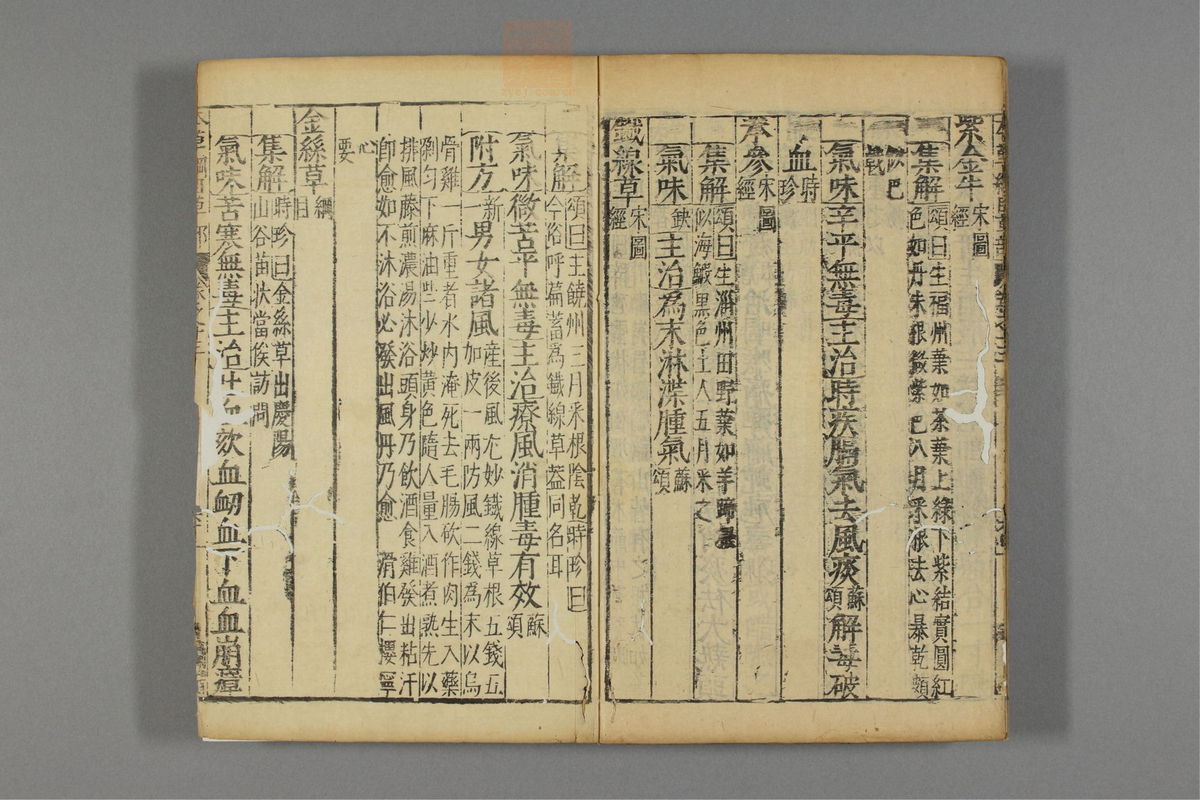 紫金牛宋圖經
集解頌曰生福州葉如茶葉上綠下紫結實圓紅
色如丹朱根微紫色八月采根去心暴乾頗
似巴戟
氣味辛平無毒主治時疾膈氣去風痰蘇頌解毒破
血時珍
拳參宋圖經
集解頌曰生淄州田野葉如羊蹄根
似海鰕黑色土人五月采之
氣味缺主治為末淋渫腫氣蘇頌
鐵線草宋圖經
集解頌曰生饒州三月采根陰乾時珍曰
今俗呼萹蓄為鐵線草蓋同名耳
氣味微苦平無毒主治療風消腫毒有效蘇頌
附方新一男女諸風產後風尤妙鐵線草根五錢五
加皮一兩防風二錢為末以烏
骨雞一斤重者水內淹死去毛腸砍作肉生入藥
剁勻下麻油些少炒黃色隨人量入酒煮熟先以
排風藤煎濃湯沐浴頭身乃飲酒食雞發出粘汗
即愈如不沐浴必發出風丹乃愈 滑伯仁攖寧
心要
金絲草綱目
集解時珍曰金絲草出慶陽
山谷苗狀當俟訪問
氣味苦寒無毒主治吐血欬血衄血下血血崩瘴